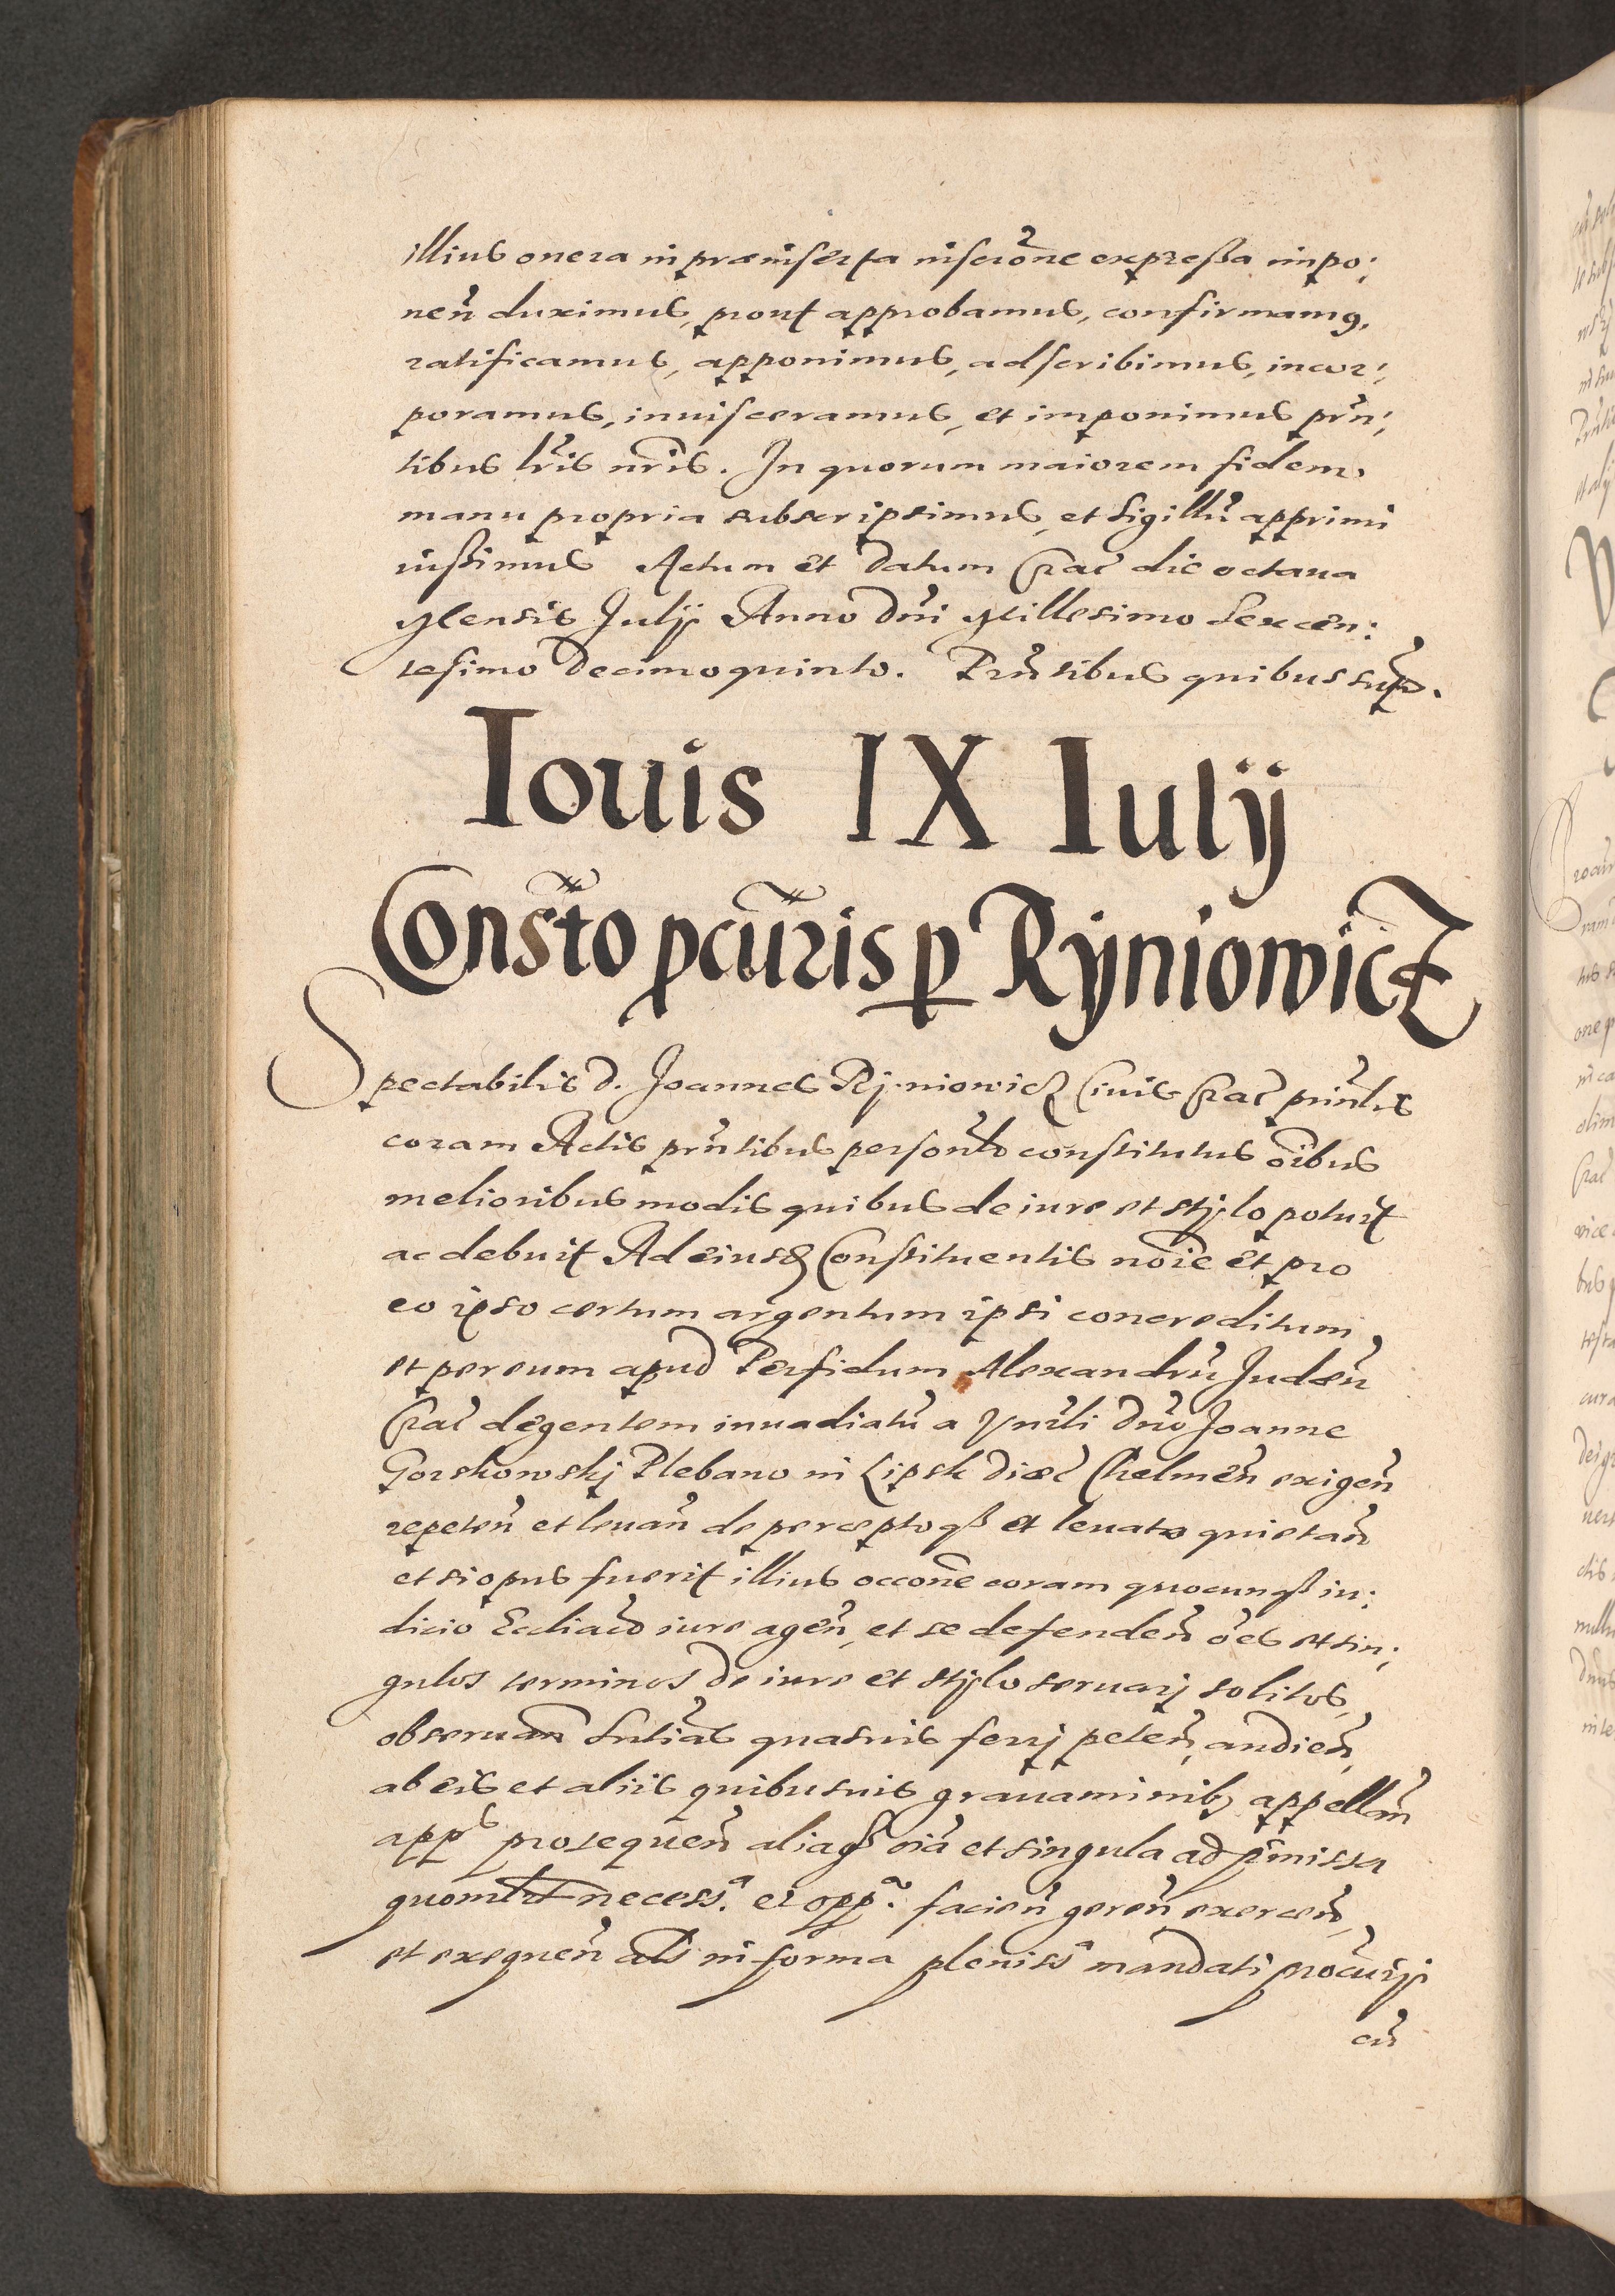 illius onera in præinserta inscrōne expressa impo:
neñ duximus, prout approbamus, confirmamꝯ,
ratificamus, apponimus, adscribimus, incor:
poramus, inuisceramus, et imponimus prñ:
tibus lr̃is nr̃is. In quorum maiorem fidem
manu propria subscripsimus, et Sigillũ apprimi
iussimus Actum et Datum Crac̃ die octaua
Mensis Julij Anno Dñi Millesimo Sexcen:
tesimo Decimoquinto. Prñtibus quibus sup̃.
Iouis IX Iulij
Const̃o pcũris ꝑ Ryniowicz
Spectabilis D. Joannes Ryniowicz Ciuis Crac̃ prin̄lr
coram Actis prñtibus person̄lr constitutus õibus
melioribus modis quibus de iure et stylo potuit
ac debuit Ad eiusd Constituentis nõie et pro
eo ipso certum argentum ipsi concreditum
et per eum apud Perfidum Alexandrũ Judæũ
Crac̃ degentem inuadiatũ a Vnrl̃i Dño Joanne
Gorskowskj Plebano in Lipsk Diæc̃ Chelmeñ exigeñ
repeteñ et leuañ de perceptoqꝫ et leuato quietañ
et si opus fuerit illius occõne coram quocunqꝫ iu:
dicio Eccl̃iaco iure ageñ, et se defendeñ ões et sin:
gulos terminos de iure et stylo seruarj solitos,
obseruañ Sn̄tias quasuis ferrj peteñ, audieñ,
ab eis et aliis quibusuis grauaminibꝫ appellañ
app̃s prosequeñ aliaqꝫ õia et singula ad p̃missa
quomlt necess.ª et opp.ª facieñ gereñ exerceñ,
et exequeñ als in forma pleniss.ª mandati procũrij
cũ